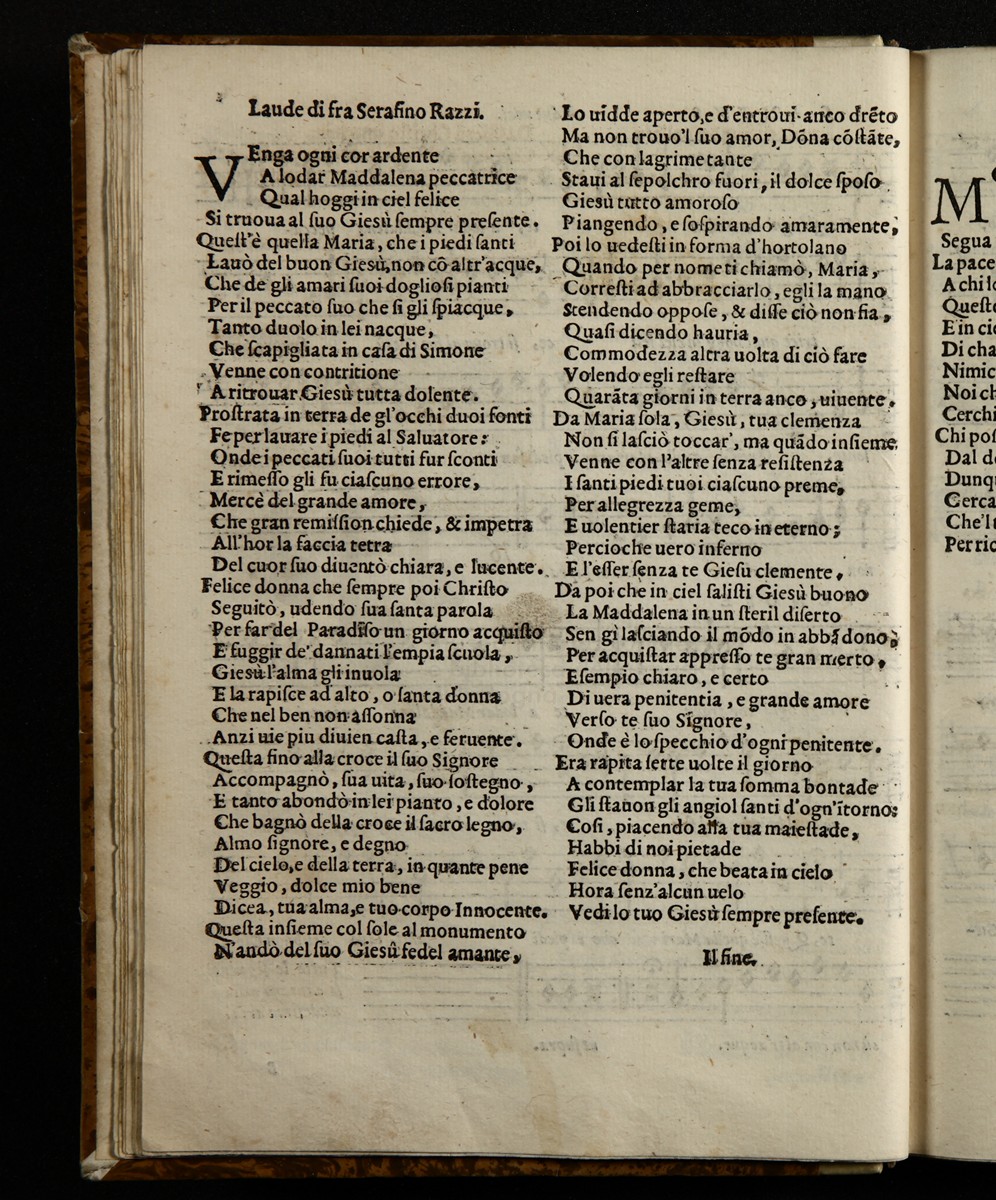 Laude di fra Serafino Razzi.
VEnga ogni cor ardente
A lodar Maddalena peccatrice
Qual hoggi in ciel felice
Si truoua al ſuo Gieſù ſempre preſente.
Queſt'è quella Maria, che i piedi ſanti
Lauò del buon Gieſù, non cō altr'acque,
Che de gli amari ſuoi doglioſi pianti
Per il peccato ſuo che ſi gli ſpiacque,
Tanto duolo in lei nacque,
Che ſcapigliata in caſa di Simone
Venne con contritione
A ritrouar Gieſù tutta dolente.
Proſtrata in terra de gl'occhi duoi fonti
Fe per lauare i piedi al Saluatore:
Onde i peccati ſuoi tutti fur ſconti
E rimeſſo gli fu ciaſcuno errore,
Mercè del grande amore,
Che gran remiſſion chiede, & impetra
All'hor la faccia tetra
Del cuor ſuo diuentò chiara, e lucente.
Felice donna che ſempre poi Chriſto
Seguitò, udendo ſua ſanta parola
Per far del Paradiſo un giorno acquiſto
E fuggir de' dannati l'empia ſcuola,
Gieſù l'alma gli inuola
E la rapiſce ad alto, o ſanta donna
Che nel ben non aſſonna
Anzi uie piu diuien caſta, e feruente.
Queſta fino alla croce il ſuo Signore
Accompagnò, ſua uita, ſuo ſoſtegno,
E tanto abondò in lei pianto, e dolore
Che bagnò della croce il ſacro legno,
Almo ſignore, e degno
Del cielo, e della terra, in quante pene
Veggio, dolce mio bene
Dicea, tua alma, e tuo corpo Innocente.
Queſta inſieme col ſole al monumento
N'andò del ſuo Gieſù fedel amante,
Lo uidde aperto, e d'entroui anco drēto
Ma non trouo'l ſuo amor, Dōna cōſtāte,
Che con lagrime tante
Staui al ſepolchro fuori, il dolce ſpoſo
Gieſù tutto amoroſo
Piangendo, e ſoſpirando amaramente,
Poi lo uedeſti in forma d'hortolano
Quando per nome ti chiamò, Maria,
Correſti ad abbracciarlo, egli la mano
Stendendo oppoſe, & diſſe ciò non fia,
Quaſi dicendo hauria,
Commodezza altra uolta di ciò fare
Volendo egli reſtare
Quarāta giorni in terra anco, uiuente.
Da Maria ſola, Gieſù, tua clemenza
Non ſi laſciò toccar', ma quādo inſieme
Venne con l'altre ſenza reſiſtenza
I ſanti piedi tuoi ciaſcuno preme,
Per allegrezza geme,
E uolentier ſtaria teco in eterno;
Percioche uero inferno
E l'eſſer ſenza te Gieſu clemente,
Da poi che in ciel ſaliſti Gieſù buono
La Maddalena in un ſteril diſerto
Sen gì laſciando il mōdo in abbādono;
Per acquiſtar appreſſo te gran merto,
Eſempio chiaro, e certo
Di uera penitentia, e grande amore
Verſo te ſuo Signore,
Onde è lo ſpecchio d'ogni penitente.
Era rapita ſette uolte il giorno
A contemplar la tua ſomma bontade
Gli ſtauon gli angiol ſanti d'ogn'ītorno;
Coſi, piacendo alla tua maieſtade,
Habbi di noi pietade
Felice donna, che beata in cielo
Hora ſenz'alcun uelo
Vedi lo tuo Gieſù ſempre preſente.
Il fine.
M
Segua
La pace
A chi lo
Queſto
E in cie
Di cha
Nimic
Noi ch
Cerchi
Chi poſ
Dal d
Dunqu
Cerca
Che'l
Per ric